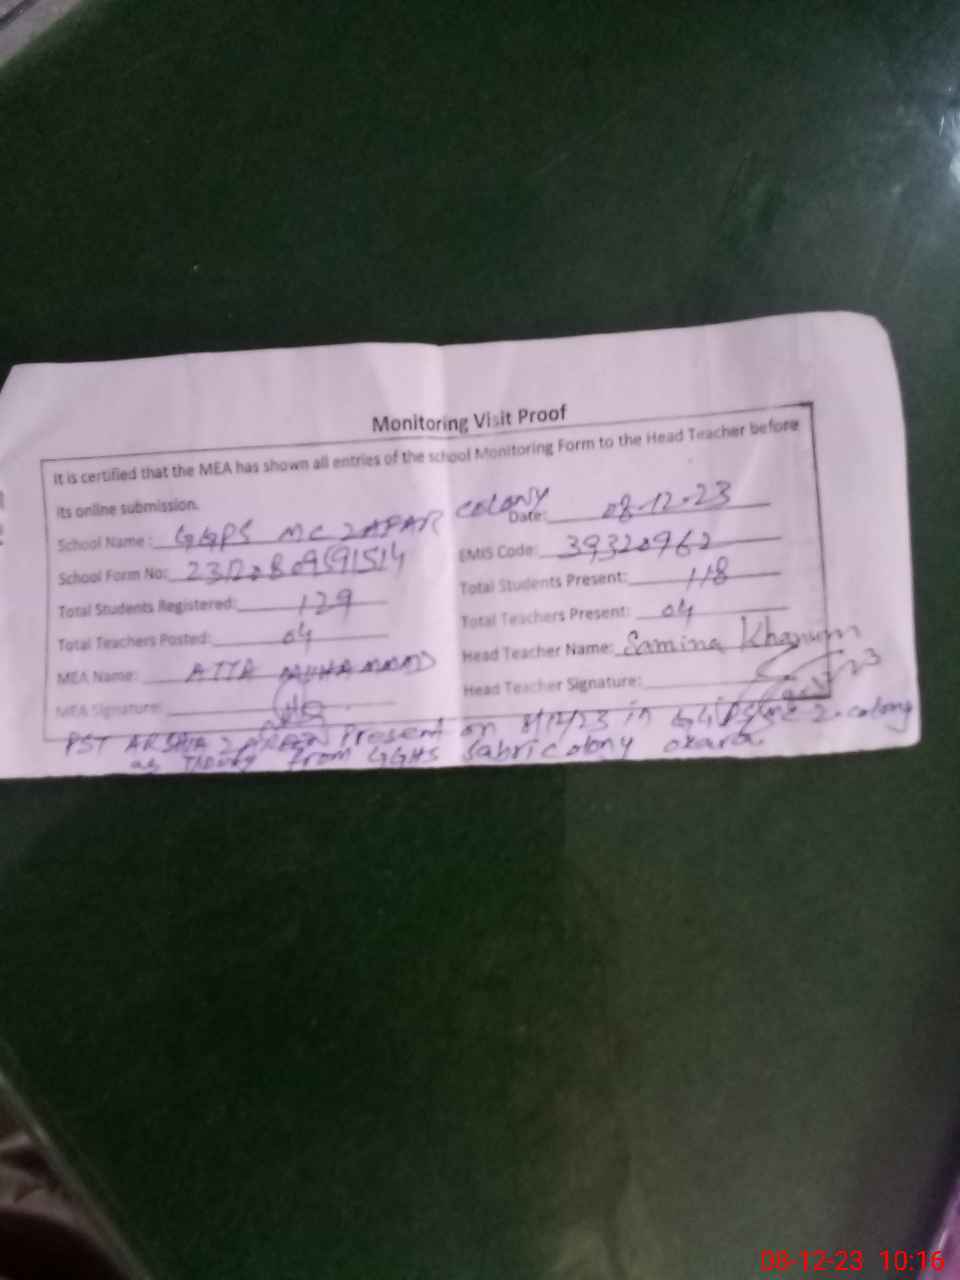 Monitoring Visit Proof
It is certified that the MEA has shown all entries of the school Monitoring Form to the Head Teacher before
its online submission.
School Name: GGPS MC ZAFAR COLONY Date: 08-12-23
School Form No: EMIS Code: 39320962
Total Students Registered: 129 Total Students Present: 118
Total Teachers Posted: 04 Total Teachers Present: 04
MEA Name: ATTA MUHAMMAD Head Teacher Name: Samina Khanum
MEA Signature: Head Teacher Signature:
PST present on 8/12/23 in GGPS MC Z. colony
as from GGHS Sabri colony okara
08-12-23 10:16